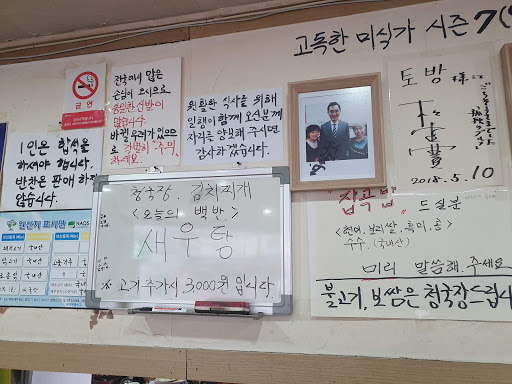 고독한 미식가 시즌7
금연
전국에서 많은
손님이 오시므로
신발이
많습니다.
바뀔 우려가 있으
므로 각별히 주의
하세요.
원활한 식사를 위해
일행이 함께 오신분께
자리를 양보해 주시면
감사하겠습니다.
1인은 합석을
하셔야 합니다.
반찬은 판매 하지
않습니다.
청국장. 김치찌개
<오늘의 백반>
새우탕
※ 고기 추가시. 3,000원 입니다.
토방 様
2018. 5. 10
"잡곡밥" 드실분
<현미, 보리쌀, 흑미, 콩>
수수. (국내산)
미리 말씀해 주세요
불고기, 보쌈은 청국장드립니
원산지 표시판